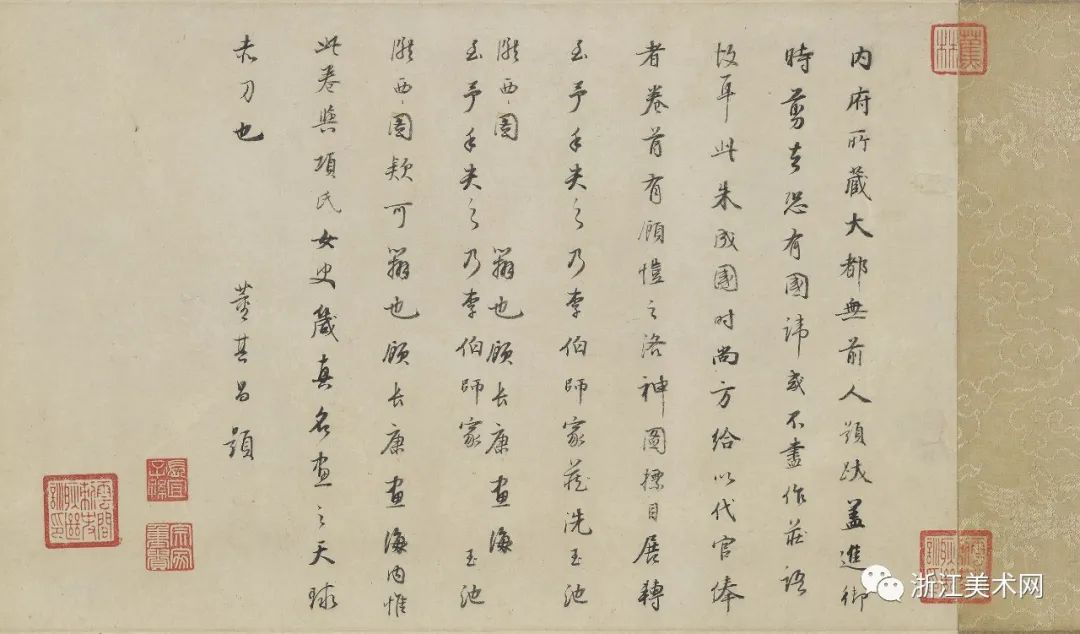 蕉林
内府所藏大都無前人題跋盖進御
時翦去恐有國諱或不盡作莊語
故耳此朱成國时尚方給以代官俸
者卷首有顧愷之洛神圖標目展轉
至予手失之乃李伯師家藏洗玉池
西圖 辯也顧長康畫海
至予手失之乃李伯師家 玉池
西圖欵可辯也顧長康畫海内惟
此卷與項氏女史箴真名畫之天球
赤刀也
董其昌題
浙江美术网